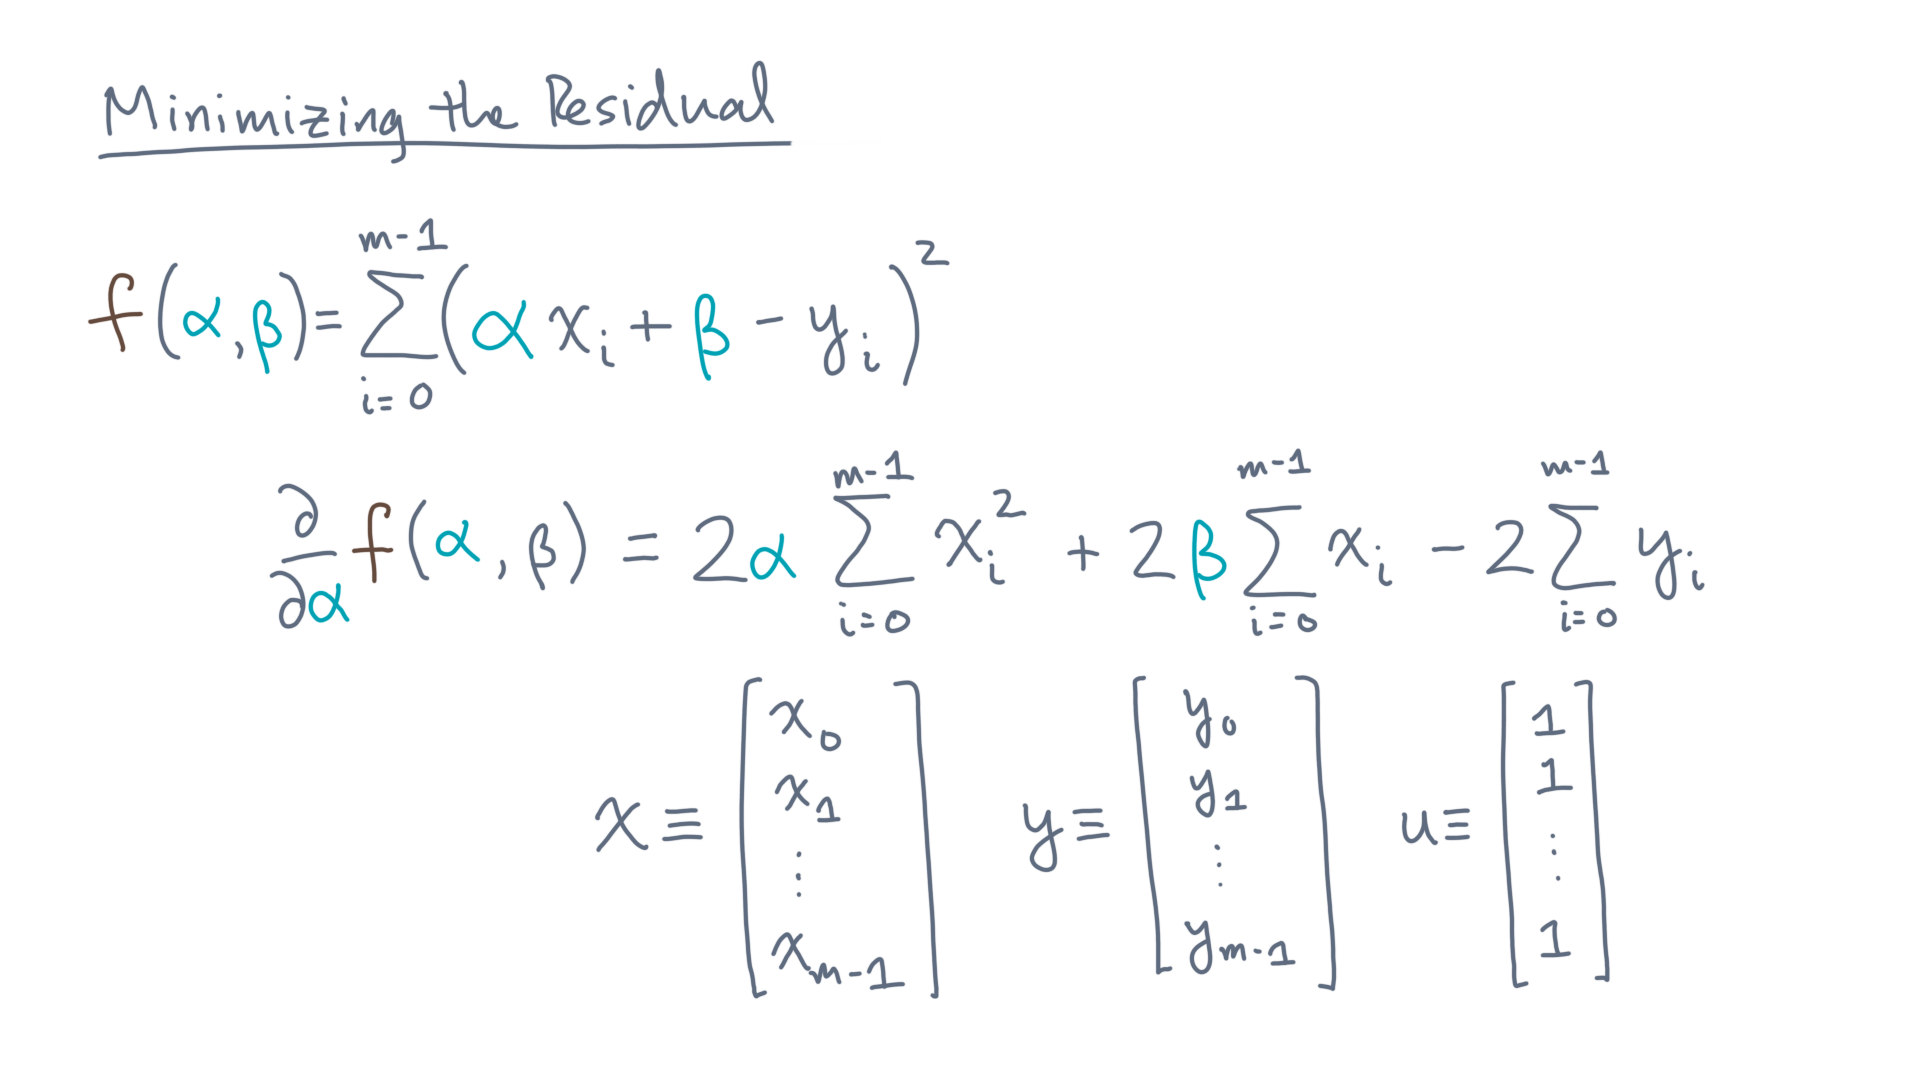 Minimizing the Residual
f(α, β) = ∑_{i=0}^{m-1} (α x_i + β - y_i)^2
∂/∂α f(α, β) = 2α ∑_{i=0}^{m-1} x_i^2 + 2β ∑_{i=0}^{m-1} x_i - 2 ∑_{i=0}^{m-1} y_i
x ≡ [x_0 x_1 ⋮ x_{m-1}] y ≡ [y_0 y_1 ⋮ y_{m-1}] u ≡ [1 1 ⋮ 1]